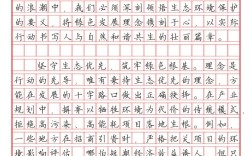 的浪潮中，我们必须深刻领悟生态环境保护
的要义，将绿色发展理念镌刻于心，以实际
行动书写人与自然和谐共生的壮丽篇章。
坚守生态优先，筑牢绿色根基。理念是
行动的先导，唯有秉持生态优先的理念，方
能在发展的十字路口做出正确抉择。在产业
规划中，摒弃以牺牲环境为代价的传统模式
拒绝高污染、高能耗项目落地生根。例如，
一些地方在招商引资时，严格把关项目的环